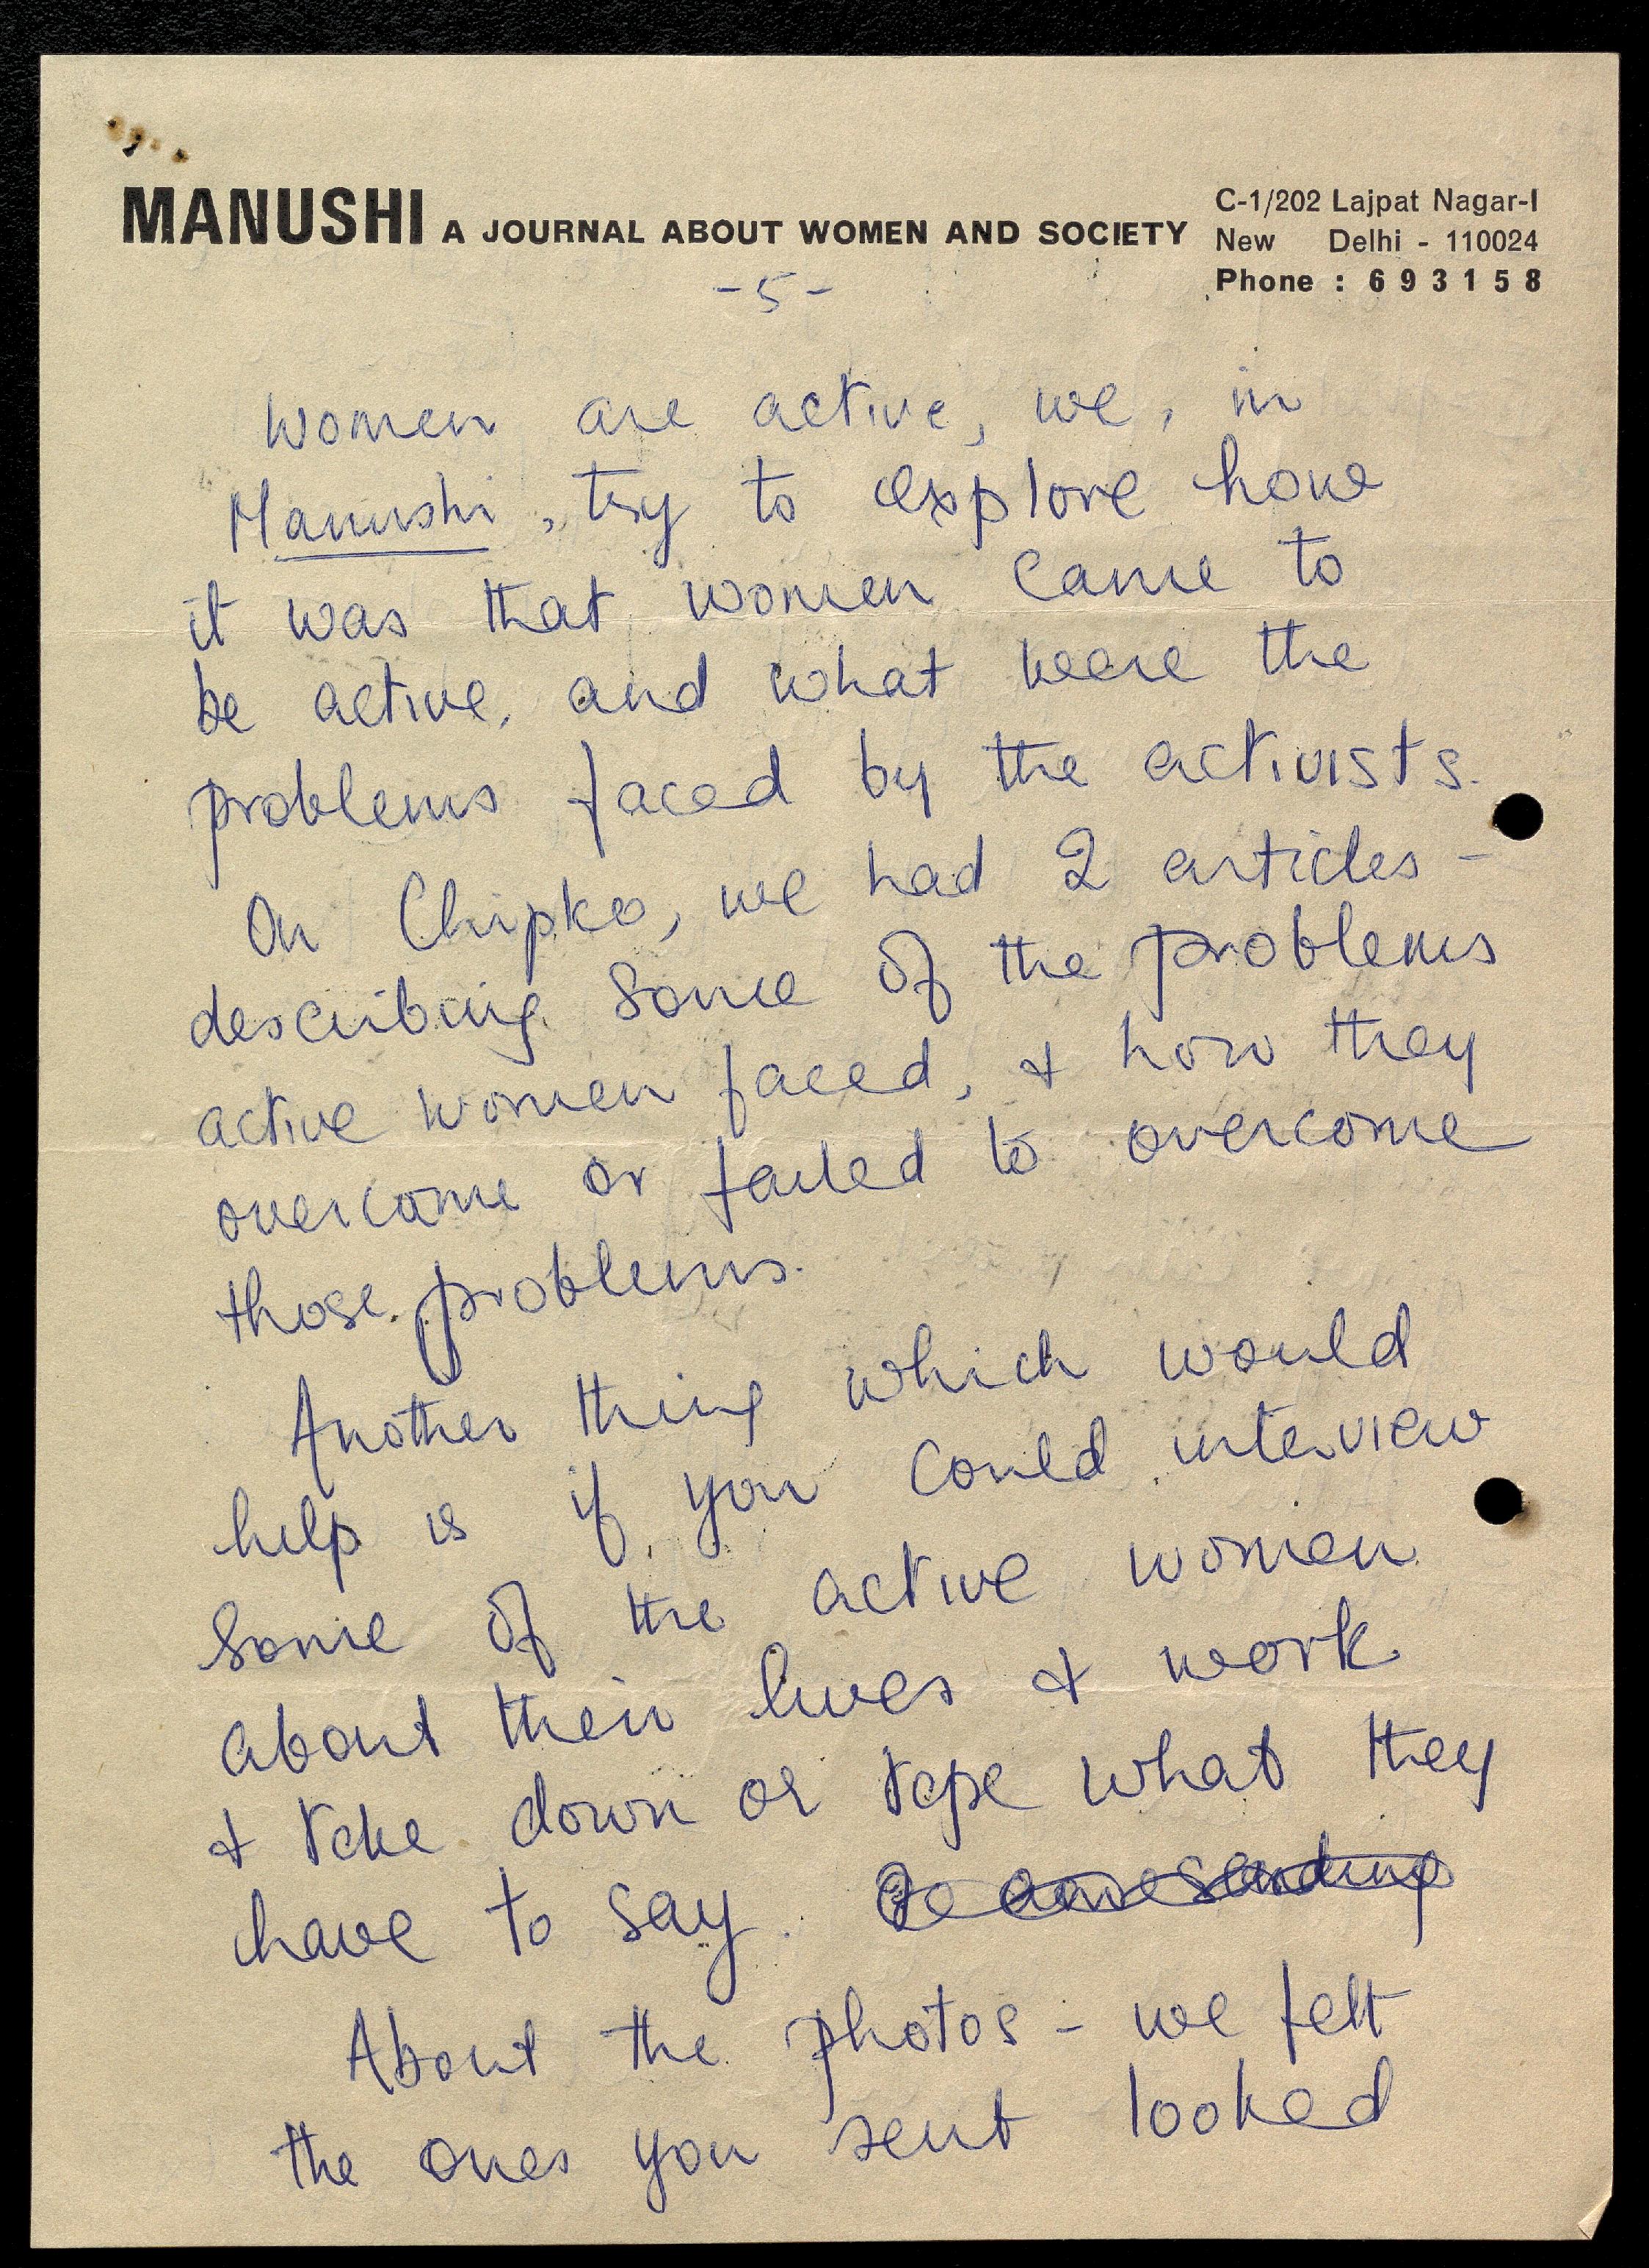 MANUSHI A JOURNAL ABOUT WOMEN AND SOCIETY
C-1/202 Lajpat Nagar-I
New Delhi - 110024
Phone : 693158
-5-
women are active, we, in
Manushi, try to explore how
it was that women came to
be active, and what were the
problems faced by the activists.
On Chipko, we had 2 articles -
describing some of the problems
active women faced, & how they
overcame or failed to overcome
those problems.
Another thing which would
help is if you could interview
some of the active women
about their lives & work
& take down or tape what they
have to say.
About the photos - we felt
the ones you sent looked